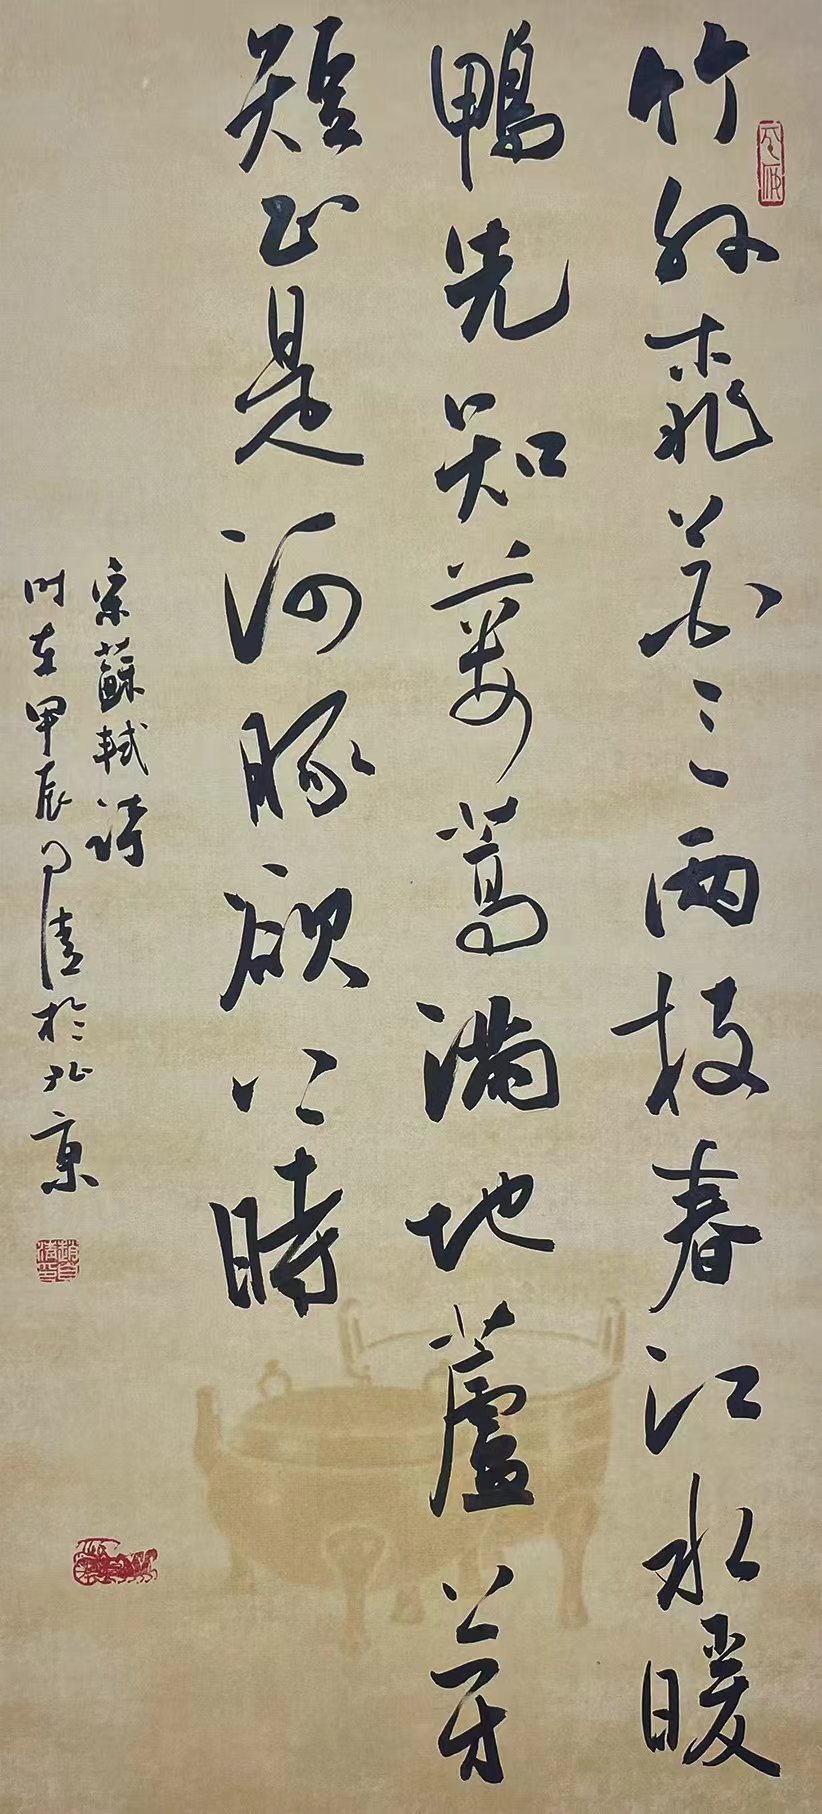 竹外桃花三两枝春江水暖
鴨先知蒌蒿满地蘆芽
短正是河豚欲上時
宋蘇軾诗
时在甲辰月清於北京